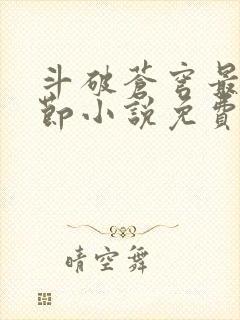 斗破蒼穹最
節小說免費
晴空舞